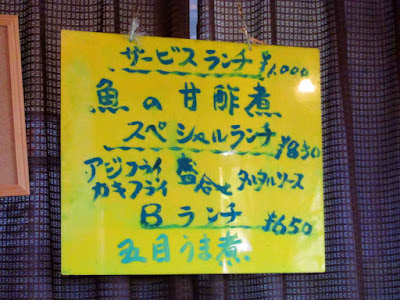 サービスランチ ¥1,000
魚の甘酢煮
スペシャルランチ ¥850
アジフライ
カキフライ 盛合せ タルタルソース
Bランチ ¥650
五目うま煮